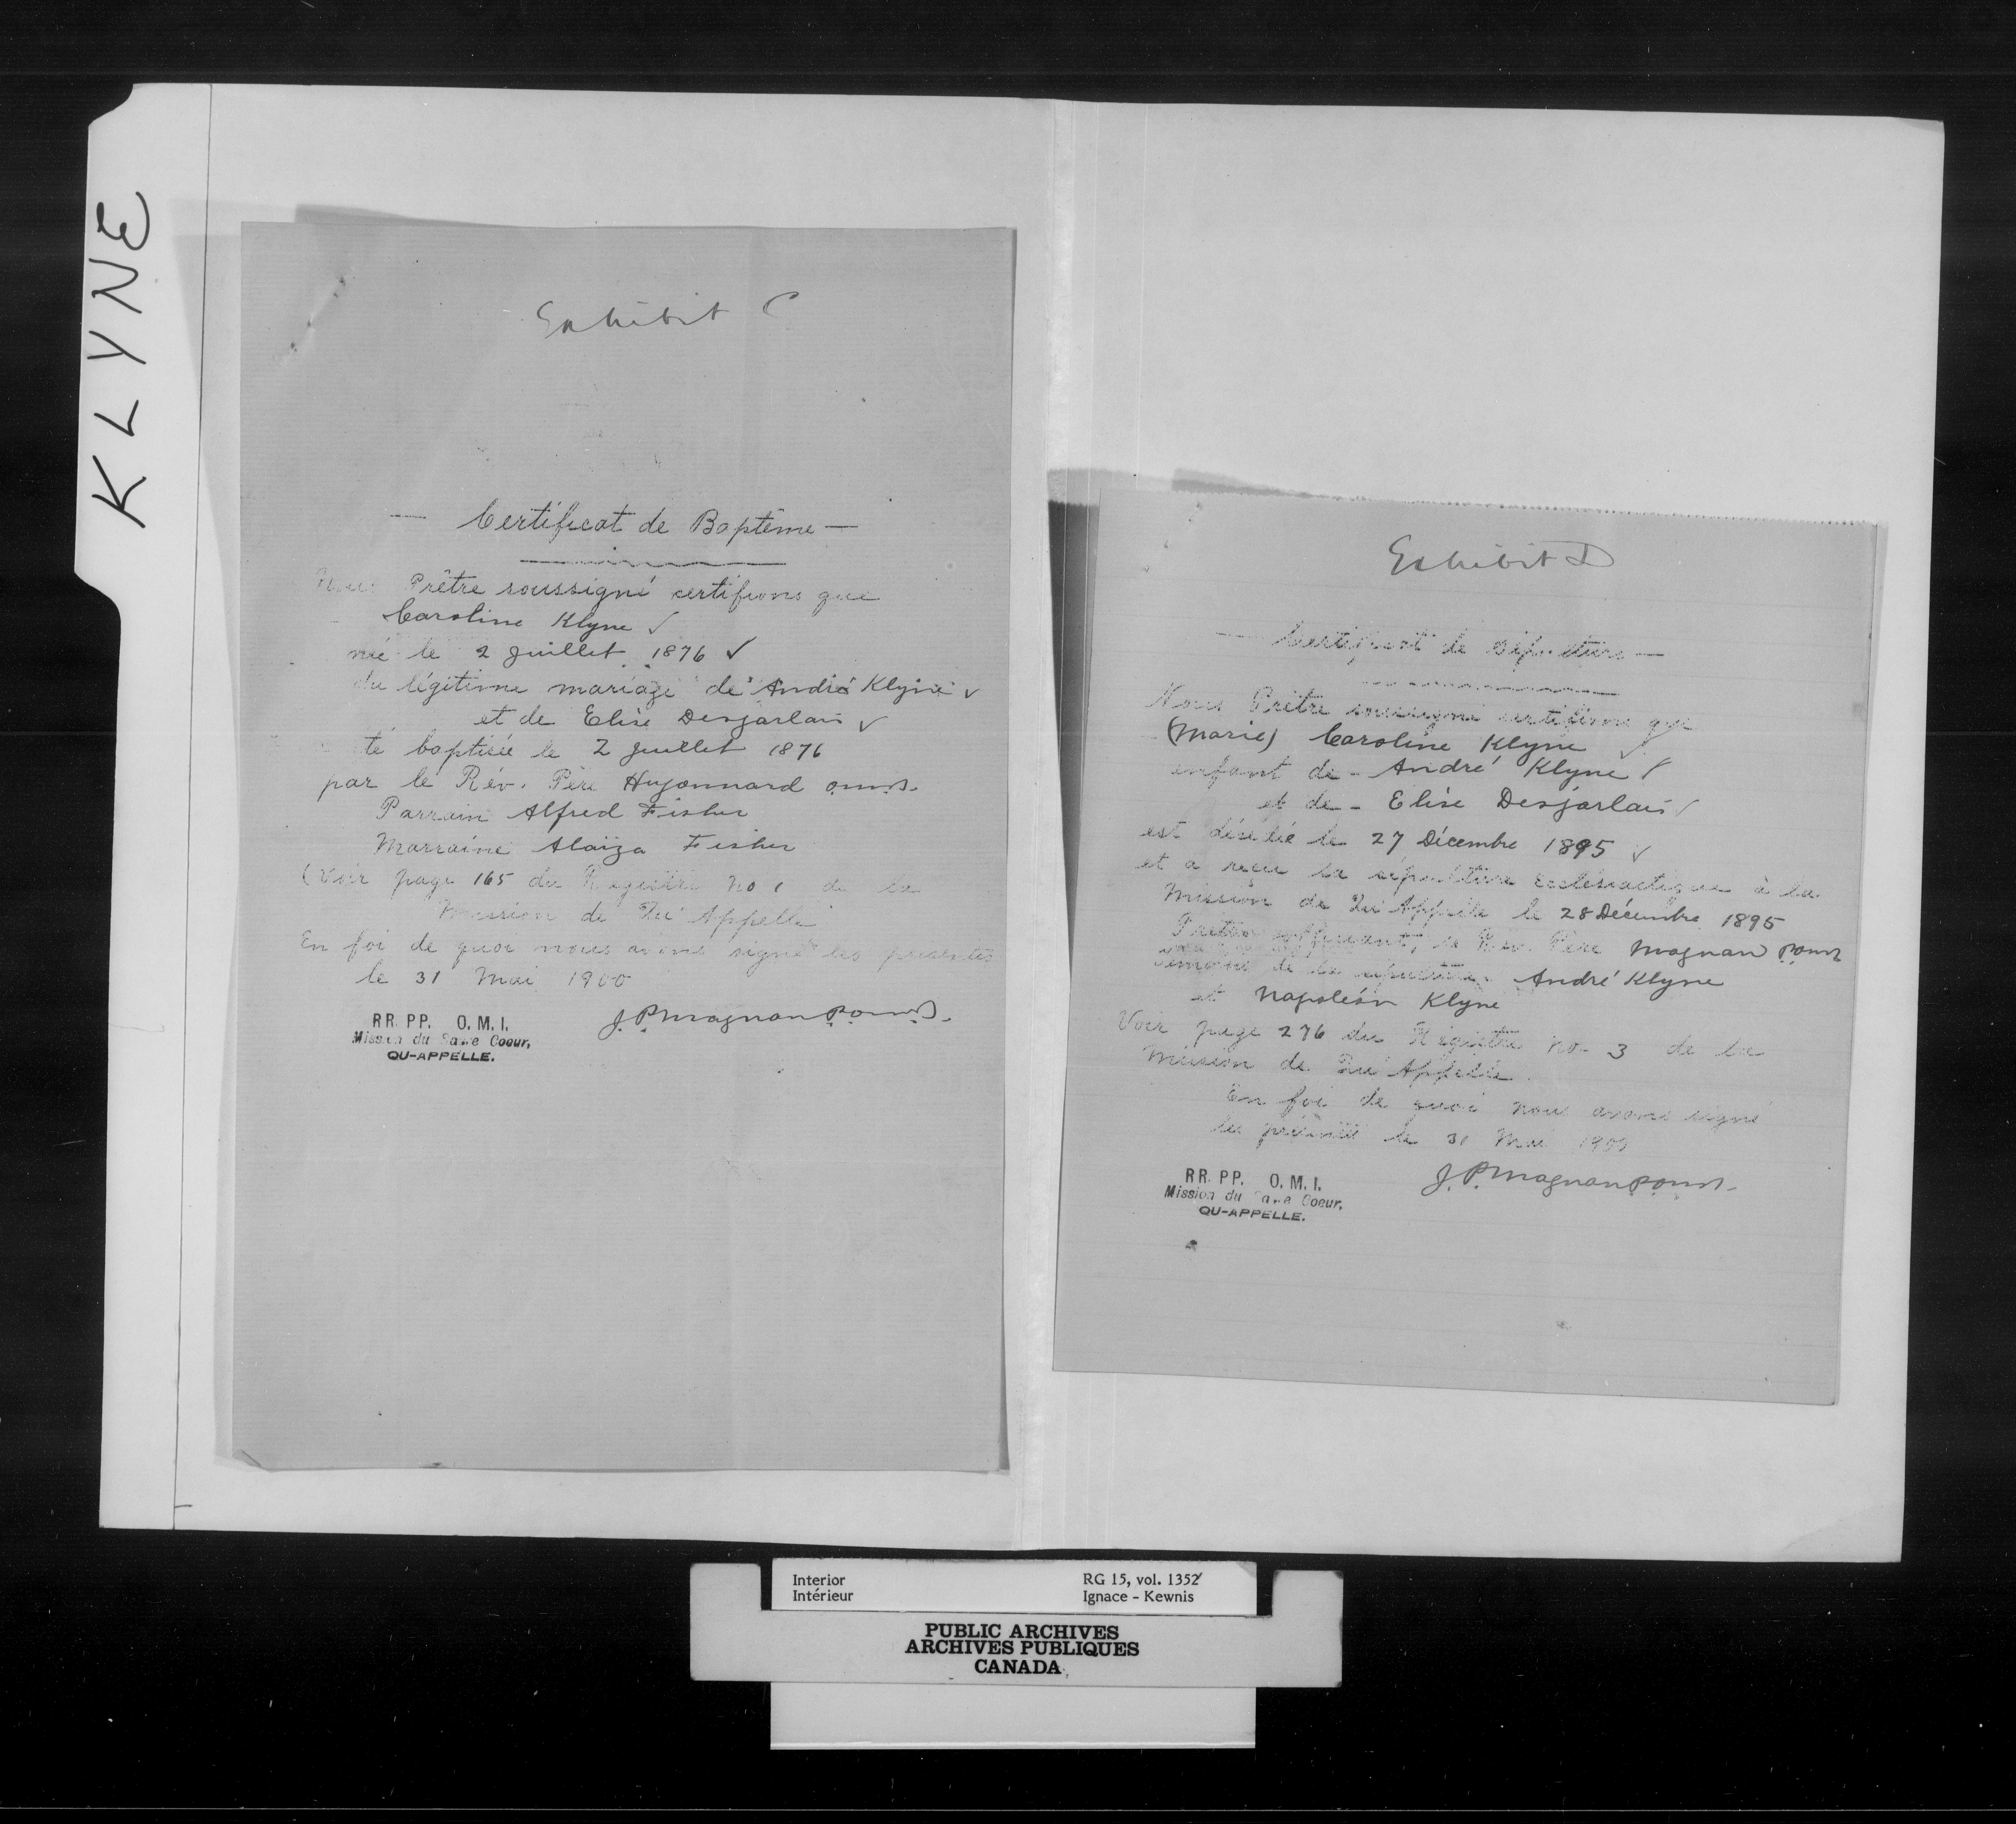 KLYNE
Exhibit C
— Certificat de Baptême —
Nous Prêtre soussigné certifions que
Caroline Klyne ✓
née le 2 Juillet 1876 ✓
du légitime mariage de André Klyne ✓
et de Elise Desjarlais ✓
té baptisée le 2 Juillet 1876
par le Rév. Père Hugonnard o.m.i.
Parrain Alfred Fisher
Marraine Alaïza Fisher
(Voir page 165 du Registre No 1 de la
Mission de Qu'Appelle
En foi de quoi nous avons signé les présentes
le 31 Mai 1900
J. P. Magnan p.o.m.i.
RR. PP. O. M. I.
Mission du Sacre Coeur,
QU-APPELLE.
Exhibit D
— Certificat de Sépulture —
Nous Prêtre soussigné certifions que
(Marie) Caroline Klyne ✓
enfant de - André Klyne ✓
et de - Elise Desjarlais ✓
est décédée le 27 Décembre 1895 ✓
et a reçu la sépulture ecclésiastique à la
Mission de Qu'Appelle le 28 Décembre 1895
Prêtre officiant, le Rév. Père Magnan p.o.m.i.
témoins de la sépulture. André Klyne
et Napoléon Klyne
Voir page 276 du Régistre No 3 de la
Mission de Qu'Appelle.
En foi de quoi nous avons signé
les présentes le 31 Mai 1900
J. P. Magnan p.o.m.i.
RR. PP. O. M. I.
Mission du Sacre Coeur,
QU-APPELLE.
Interior RG 15, vol. 1352
Intérieur Ignace - Kewnis
PUBLIC ARCHIVES
ARCHIVES PUBLIQUES
CANADA